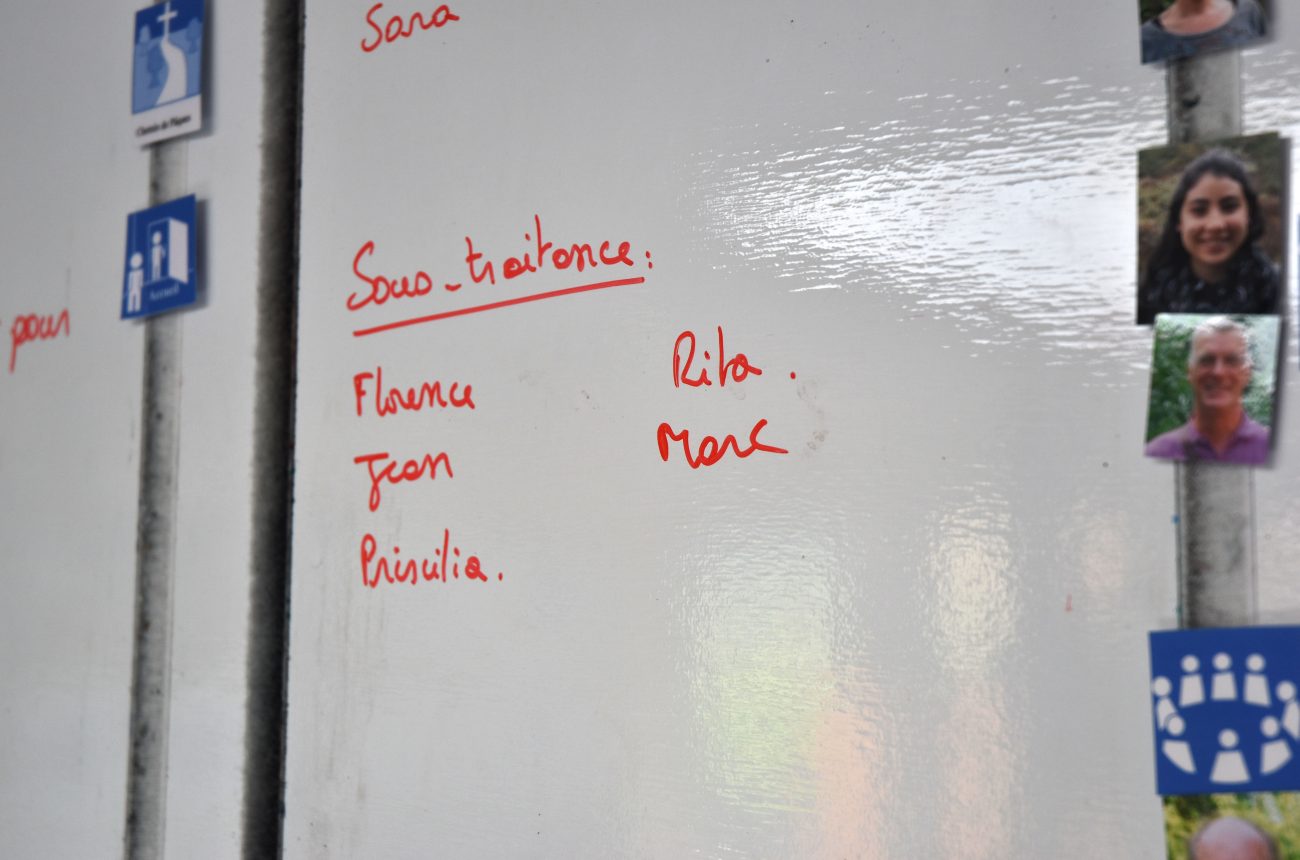 Sara
Chemin de Pâques
Accueil
pour
Sous-traitance :
Florence
Jean
Priscilia.
Rita.
Marc